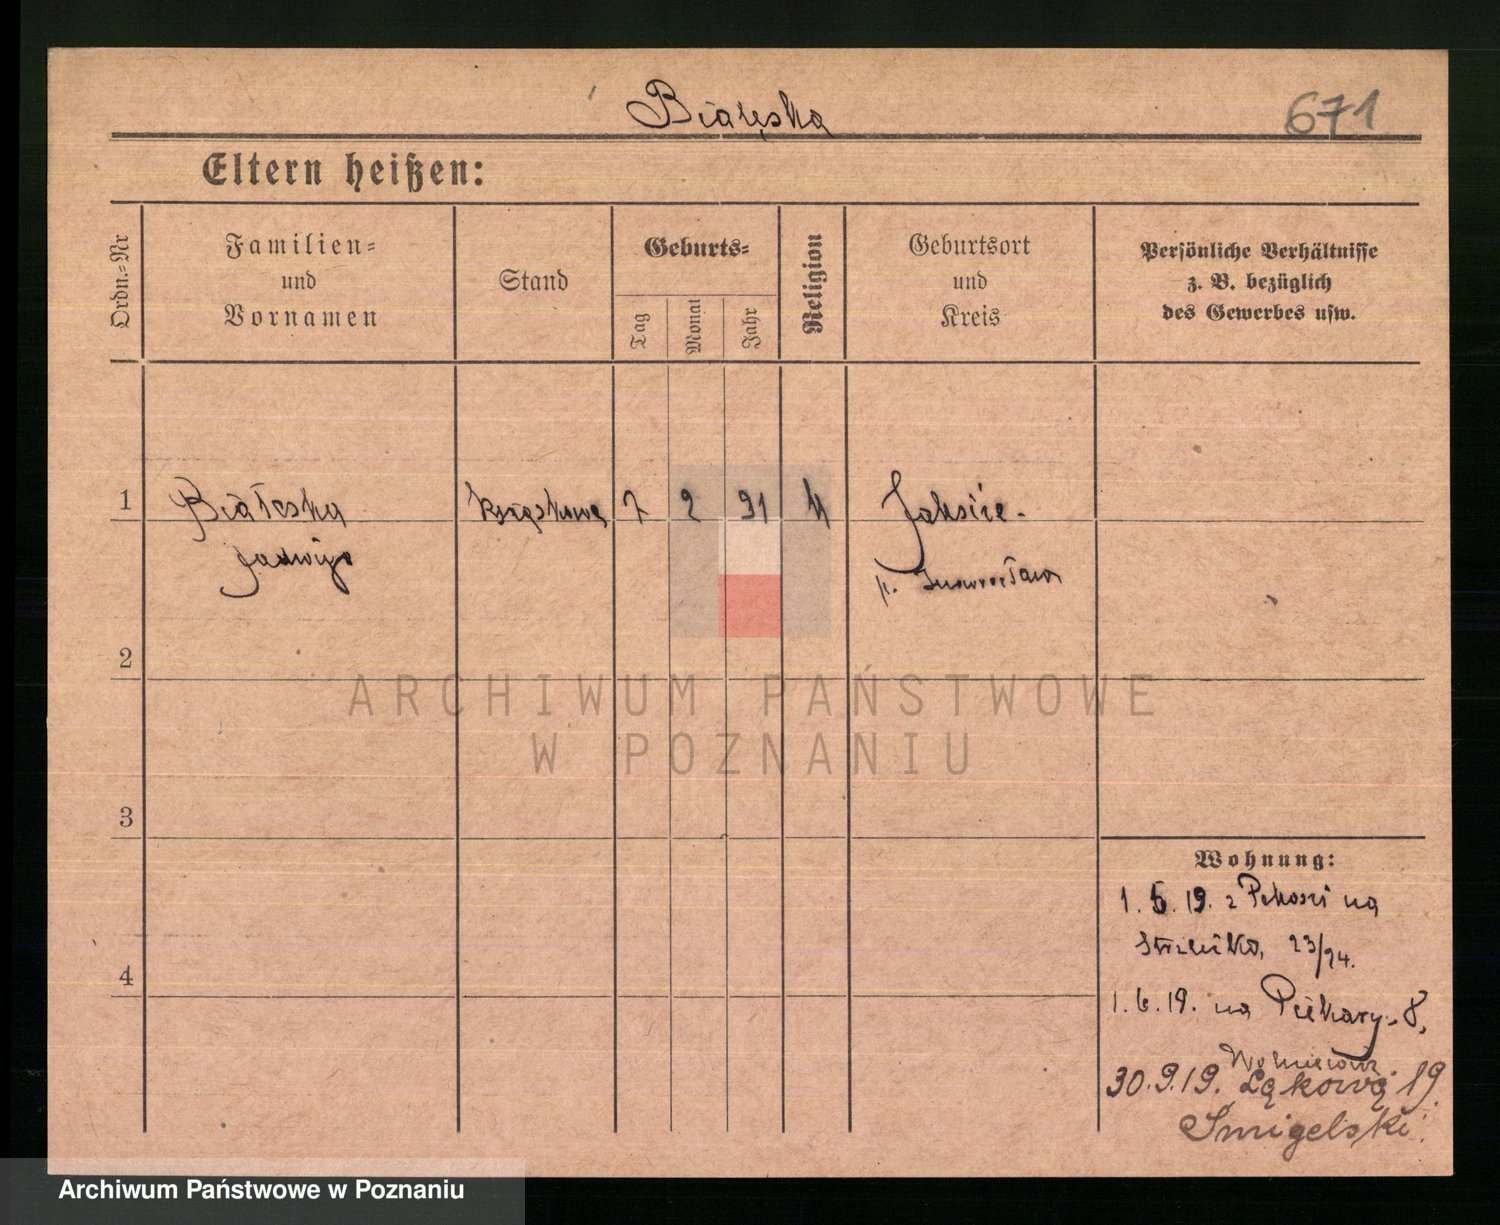 Białęska
671
Eltern heißen:
Ordn.=Nr
Familien=
und
Vornamen
Stand
Geburts=
Tag
Monat
Jahr
Religion
Geburtsort
und
Kreis
Persönliche Verhältnisse
z. B. bezüglich
des Gewerbes usw.
1
Białeska
Jadwiga
książkowa
7
2
91
k
Jaksice -
p. Inowrocław
2
3
4
Wohnung:
1. 5. 19. z Pakości na
Strzelecka, 23/24.
1. 6. 19. na Piekary - 8,
Wolniewicz.
30.9.19. Łąkowa 19.
Smigelski.
ARCHIWUM PAŃSTWOWE
W POZNANIU
Archiwum Państwowe w Poznaniu